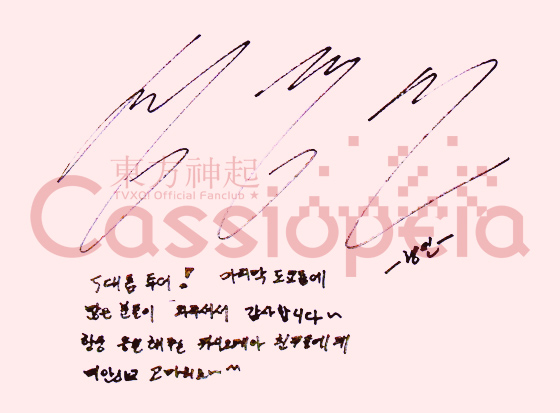 東方神起
TVXQ! Official Fanclub ★
Cassiopeia
5대돔 투어! 마지막 도쿄돔에
많은 분들이 와주셔서 감사합니다~
항상 응원해주는 카시오페아 친구들에게
미안하고 고마워요~^^